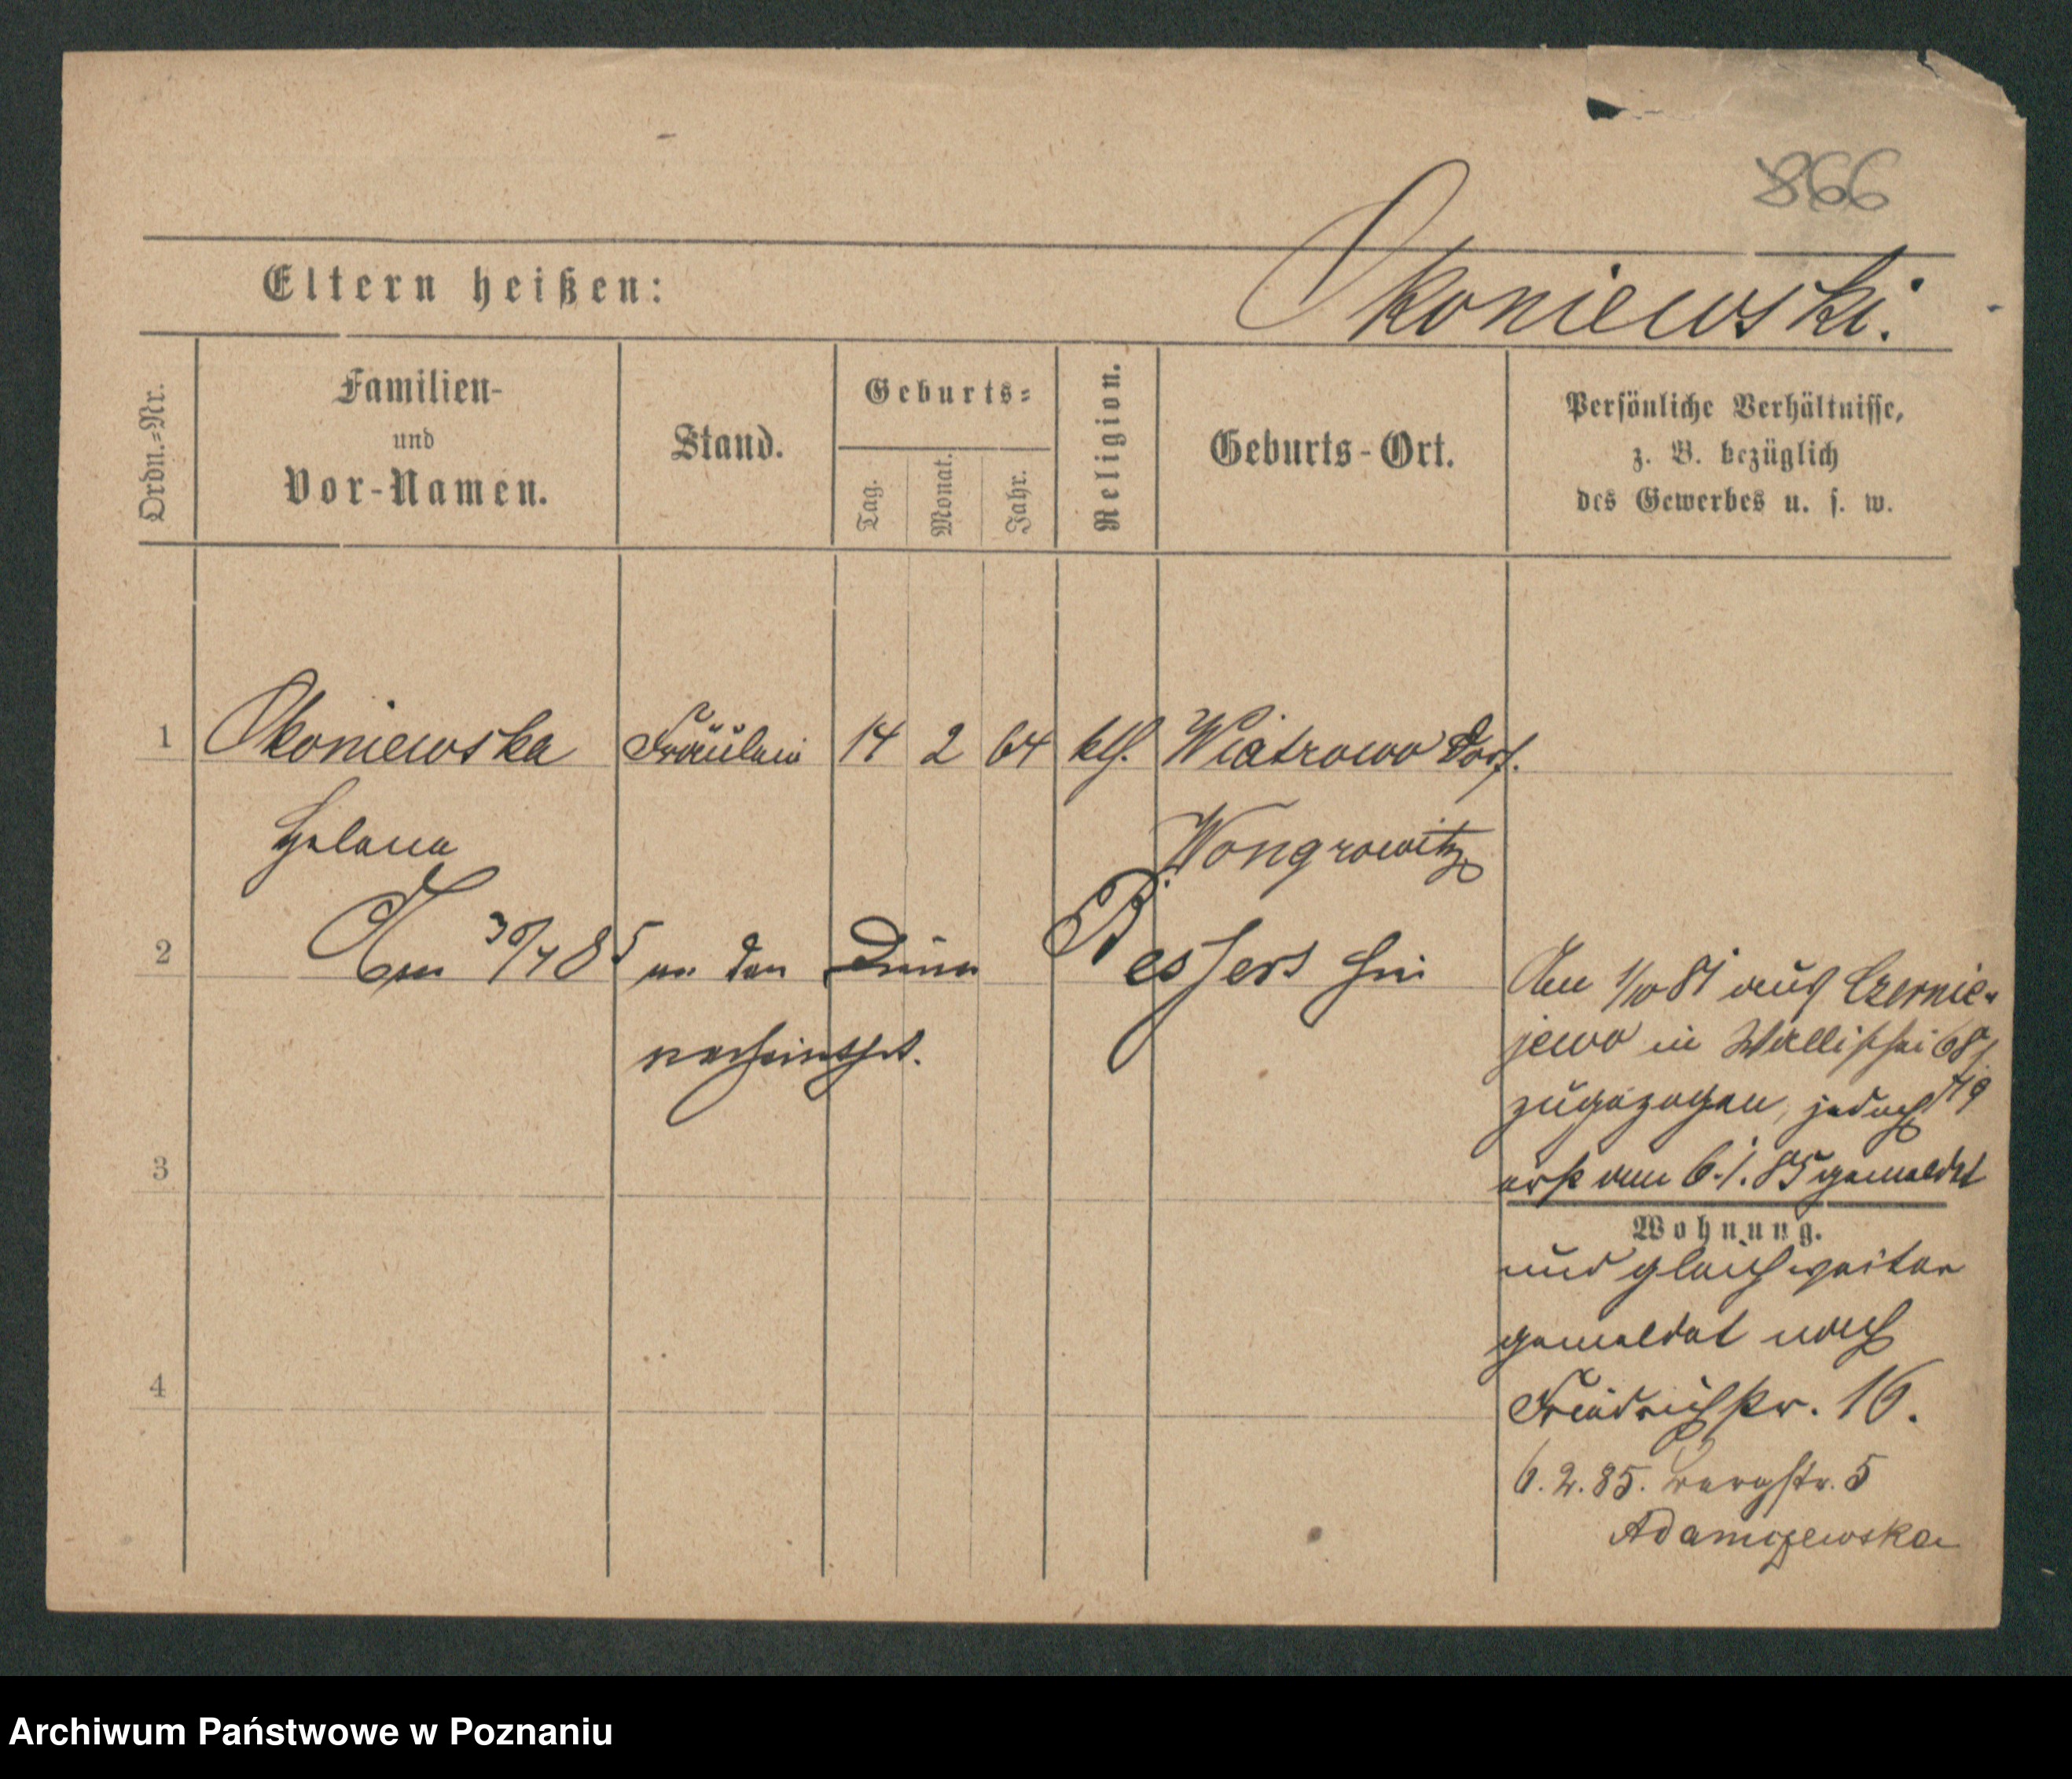 866
Eltern heißen: Okoniewski.
Ordn.=Nr.
Familien-
und
Vor-Namen.
Stand.
Geburts=
Tag. Monat. Jahr.
Religion.
Geburts-Ort.
Persönliche Verhältnisse,
z. B. bezüglich
des Gewerbes u. s. w.
1 Okoniewska Fräulein 14 2 64 kth. Wiatrowo Dorf.
Helena Wongrowitz
2 Am 30/4 85 an den
verheirathet.
Am 1/10 81 aus Czernie-
jewo in Wallischei 68/
69
zugezogen, jedoch
erst am 6.1.85 gemeldet
3
Wohnung.
und gleich weiter
gemeldet nach
4
Friedrichstr. 16.
6.2.85. Bergstr. 5
Adamczewska
Archiwum Państwowe w Poznaniu